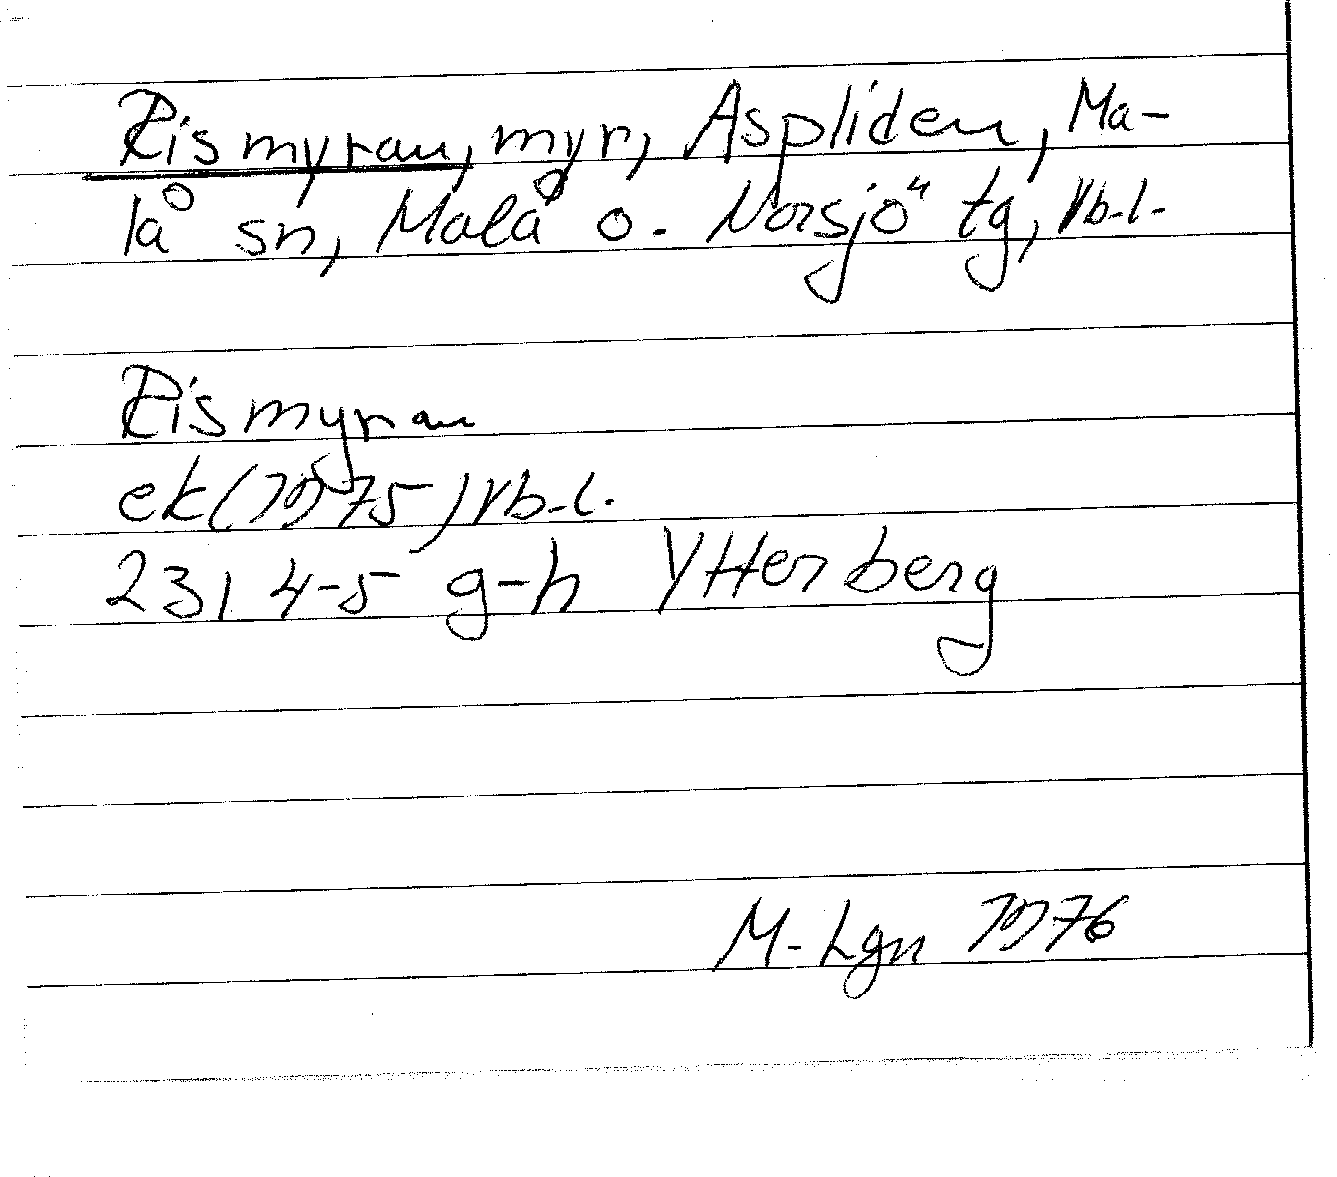 Rismyran, myr, Aspliden, Ma-
lå sn, Malå o. Norsjö tg, Vb.l.
Rismyran
ek (1975) Vb.l.
23I 4-5 g-h Ytterberg
M-Lgn 1976